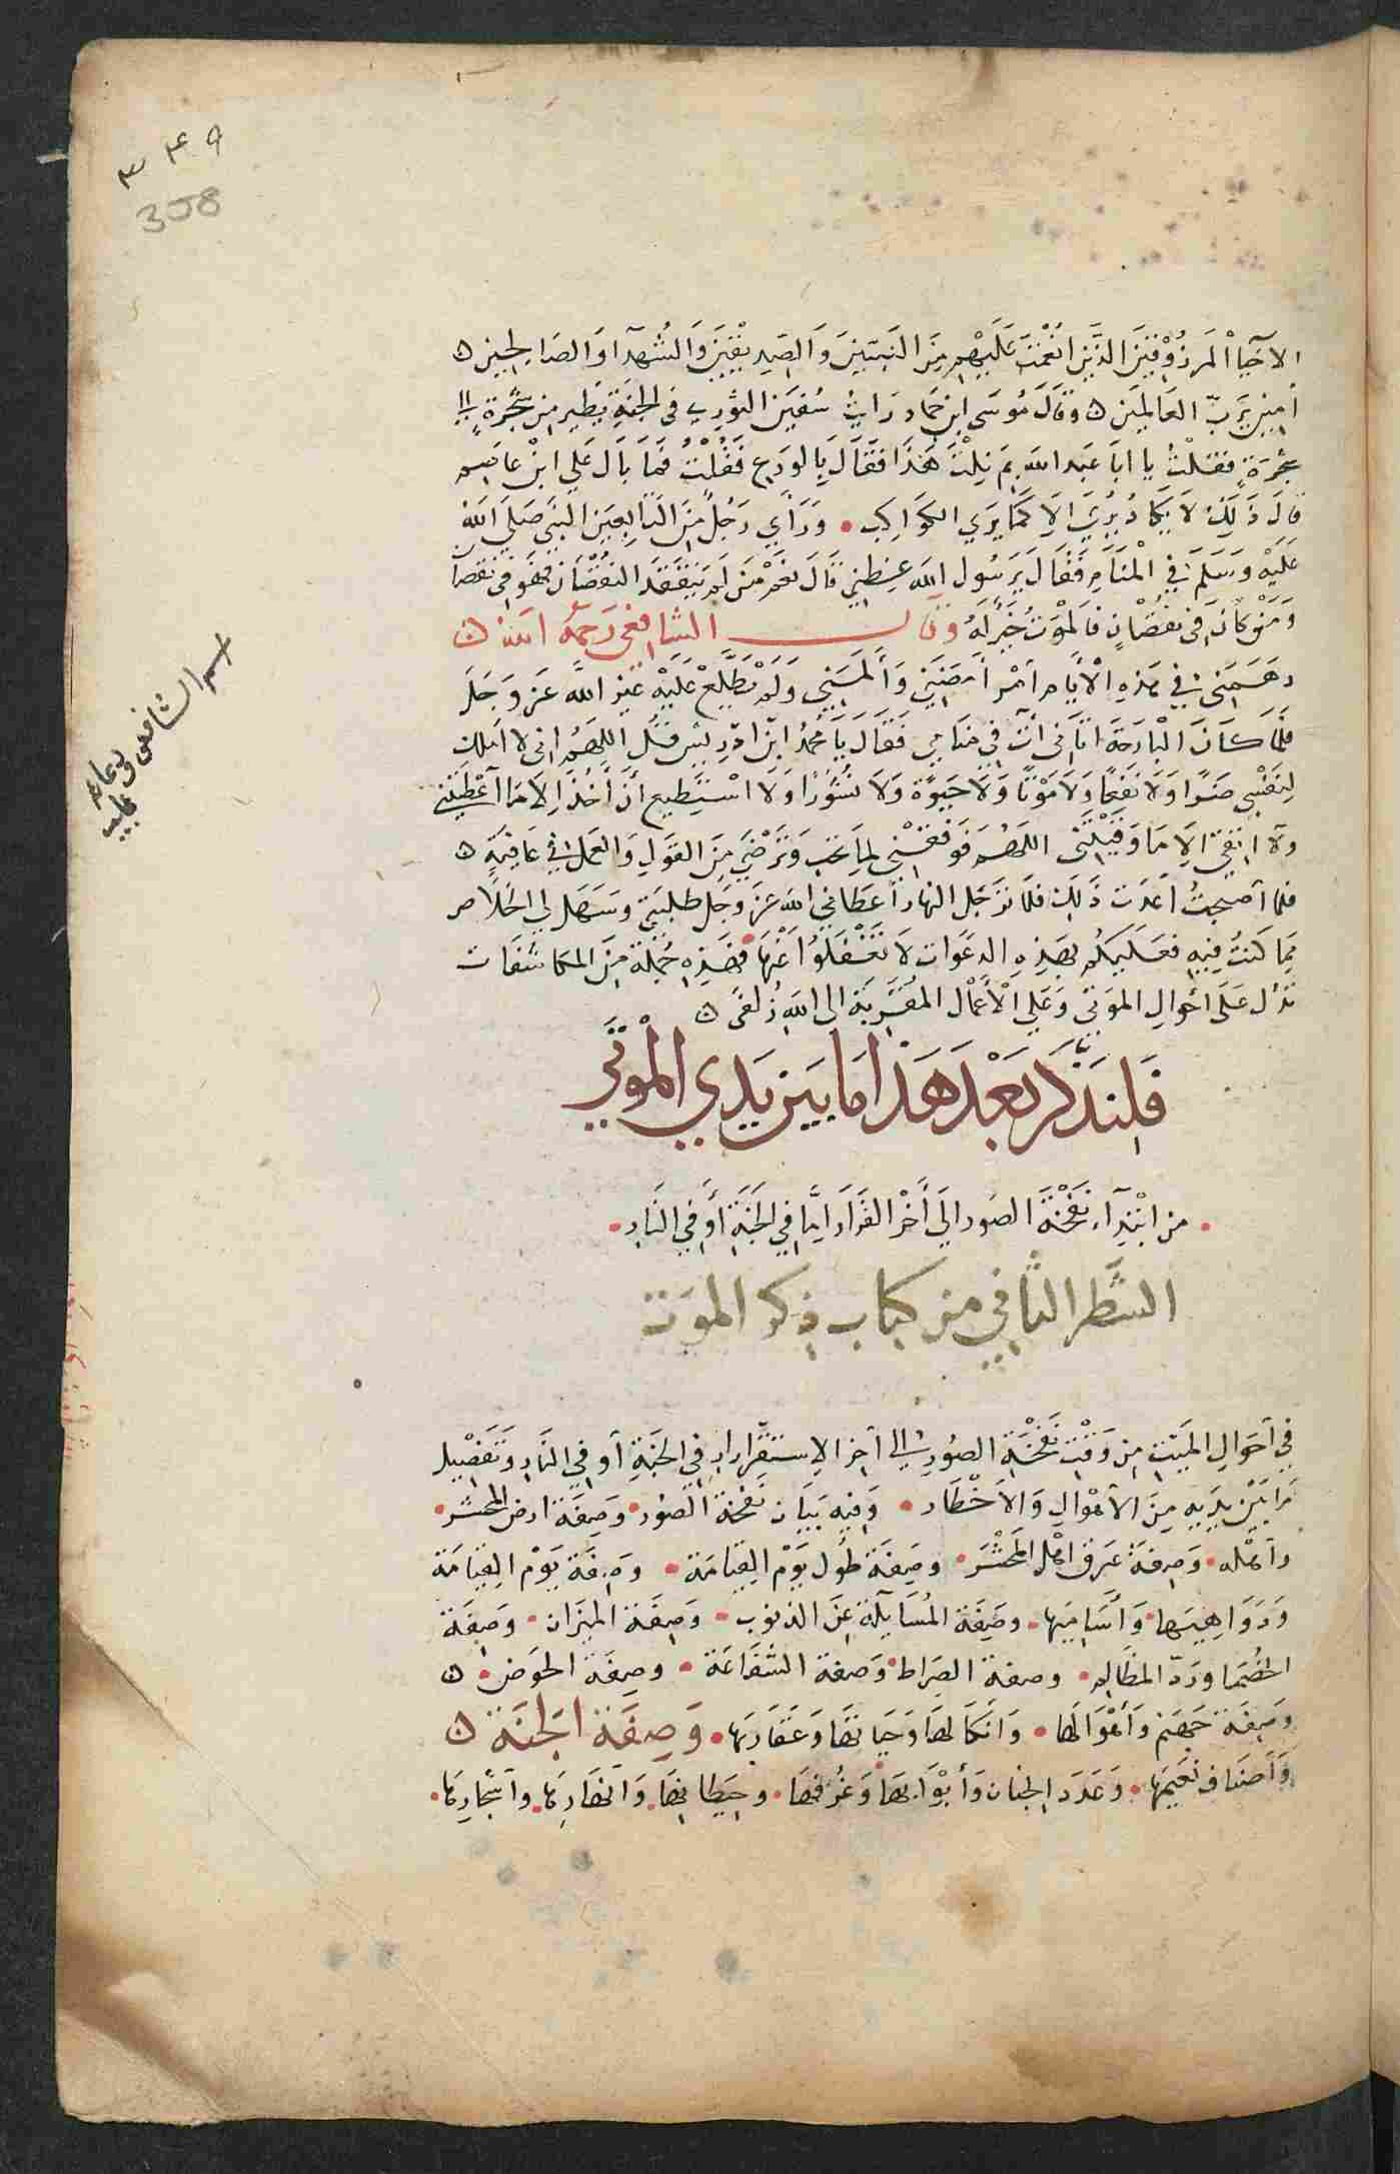 ٣٤٩
358
الاحياء المرزوقين الذين انعمت عليهم من النبيين والصديقين والشهدآ والصالحين ه
امين يرب العالمين ه وقال موسى ابن حماد رايت سفين الثوري في الجنة يطير من شجرة الى
شجرة فقلت يا ابا عبد الله بم نلت هذا فقال بالورع فقلت فما بال علي ابن عاصم
قال ذلك لا يكاد يرى الا كما يرى الكواكب • ورأي رجل من التابعين النبي صلى الله
عليه وسلم في المنام فقال يرسول الله عظني قال نعم من لم يتفقد النقصان فهو في نقصان
ومن كان في نقصان فالموت خير له وقال الشافعي رحمه الله ه
دهمني في هذه الايام امر امضني والمني ولم يطلع عليه غير الله عز وجل
فلما كان البارحة اتاني آت في منامي فقال يا محمد ابن ادريس قل اللهم اني لا املك
لنفسي ضرا ولا نفعا ولا موتا ولا حيوة ولا نشورا ولا استطيع ان اخذ الا ما اعطيتني
ولا اتقي الا ما وقيتني اللهم فوفقني لما تحب وترضى من القول والعمل في عافية ه
فلما اصبحت اعدت ذلك فلما ترجل النهار اعطاني الله عز وجل طلبتي وسهل لي الخلاص
مما كنت فيه فعليكم بهذه الدعوات لا تغفلوا عنها فهذه جملة من المكاشفات
تدل على احوال الموتى وعلى الاعمال المقربة الى الله زلفى ه
فلنذكر بعد هذا ما بين يدي الموتى
• من ابتدآء نفخة الصور الى أخر القرار اما في الجنة أو في النار •
الشطر الثاني من كتاب ذكر الموت
في احوال الميت من وقت نفخة الصور الى آخر الاستقرار في الجنة أو في النار وتفصيل
ما بين يديه من الاهوال والاخطار • وفيه بيان نفخة الصور • وصفة ارض المحشر •
واهله • وصفة عرق اهل المحشر • وصفة طول يوم القيامة • وصفة يوم القيامة
ودواهيها وأساميها • وصفة المسآيلة عن الذنوب • وصفة الميزان • وصفة
الخصما ورد المظالم • وصفة الصراط • وصفة الشفاعة • وصفة الحوض • ه
وصفة جهنم وأهوالها • وانكالها وحياتها وعقاربها • وصفة الجنة ه
وأصناف نعيمها • وعدد الجنان وأبوابها وغرفها • وحيطانها • وانهارها • واشجارها •
الشافعي ودعائه